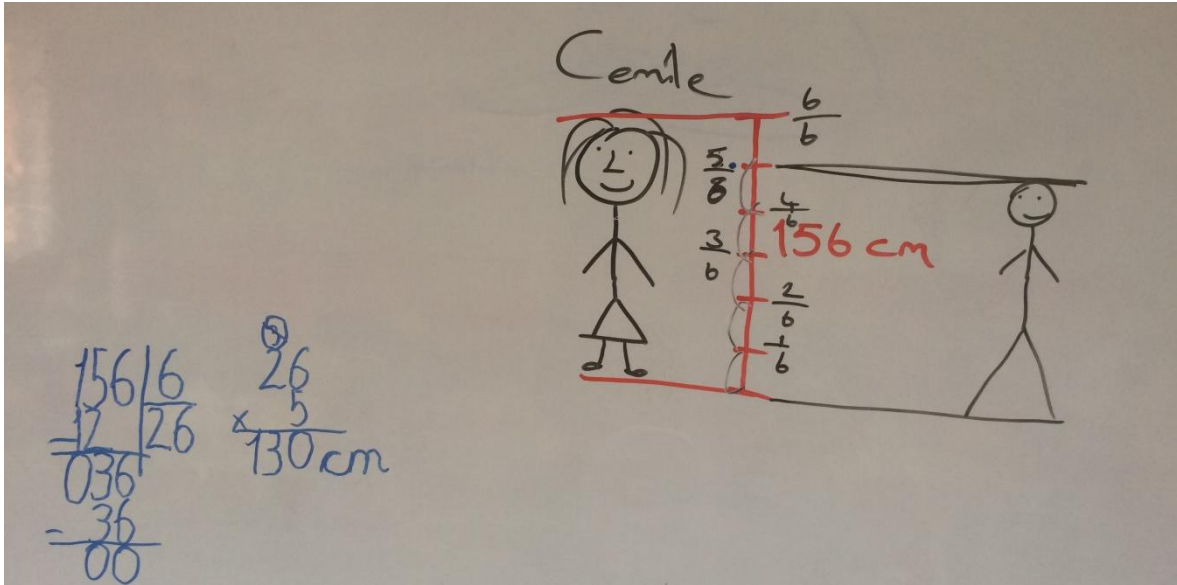 Cemile
6/6
5/8
4/6
3/6
156 cm
2/6
1/6
156 | 6
-12 | 26
036
- 36
00
3
26
x 5
130 cm